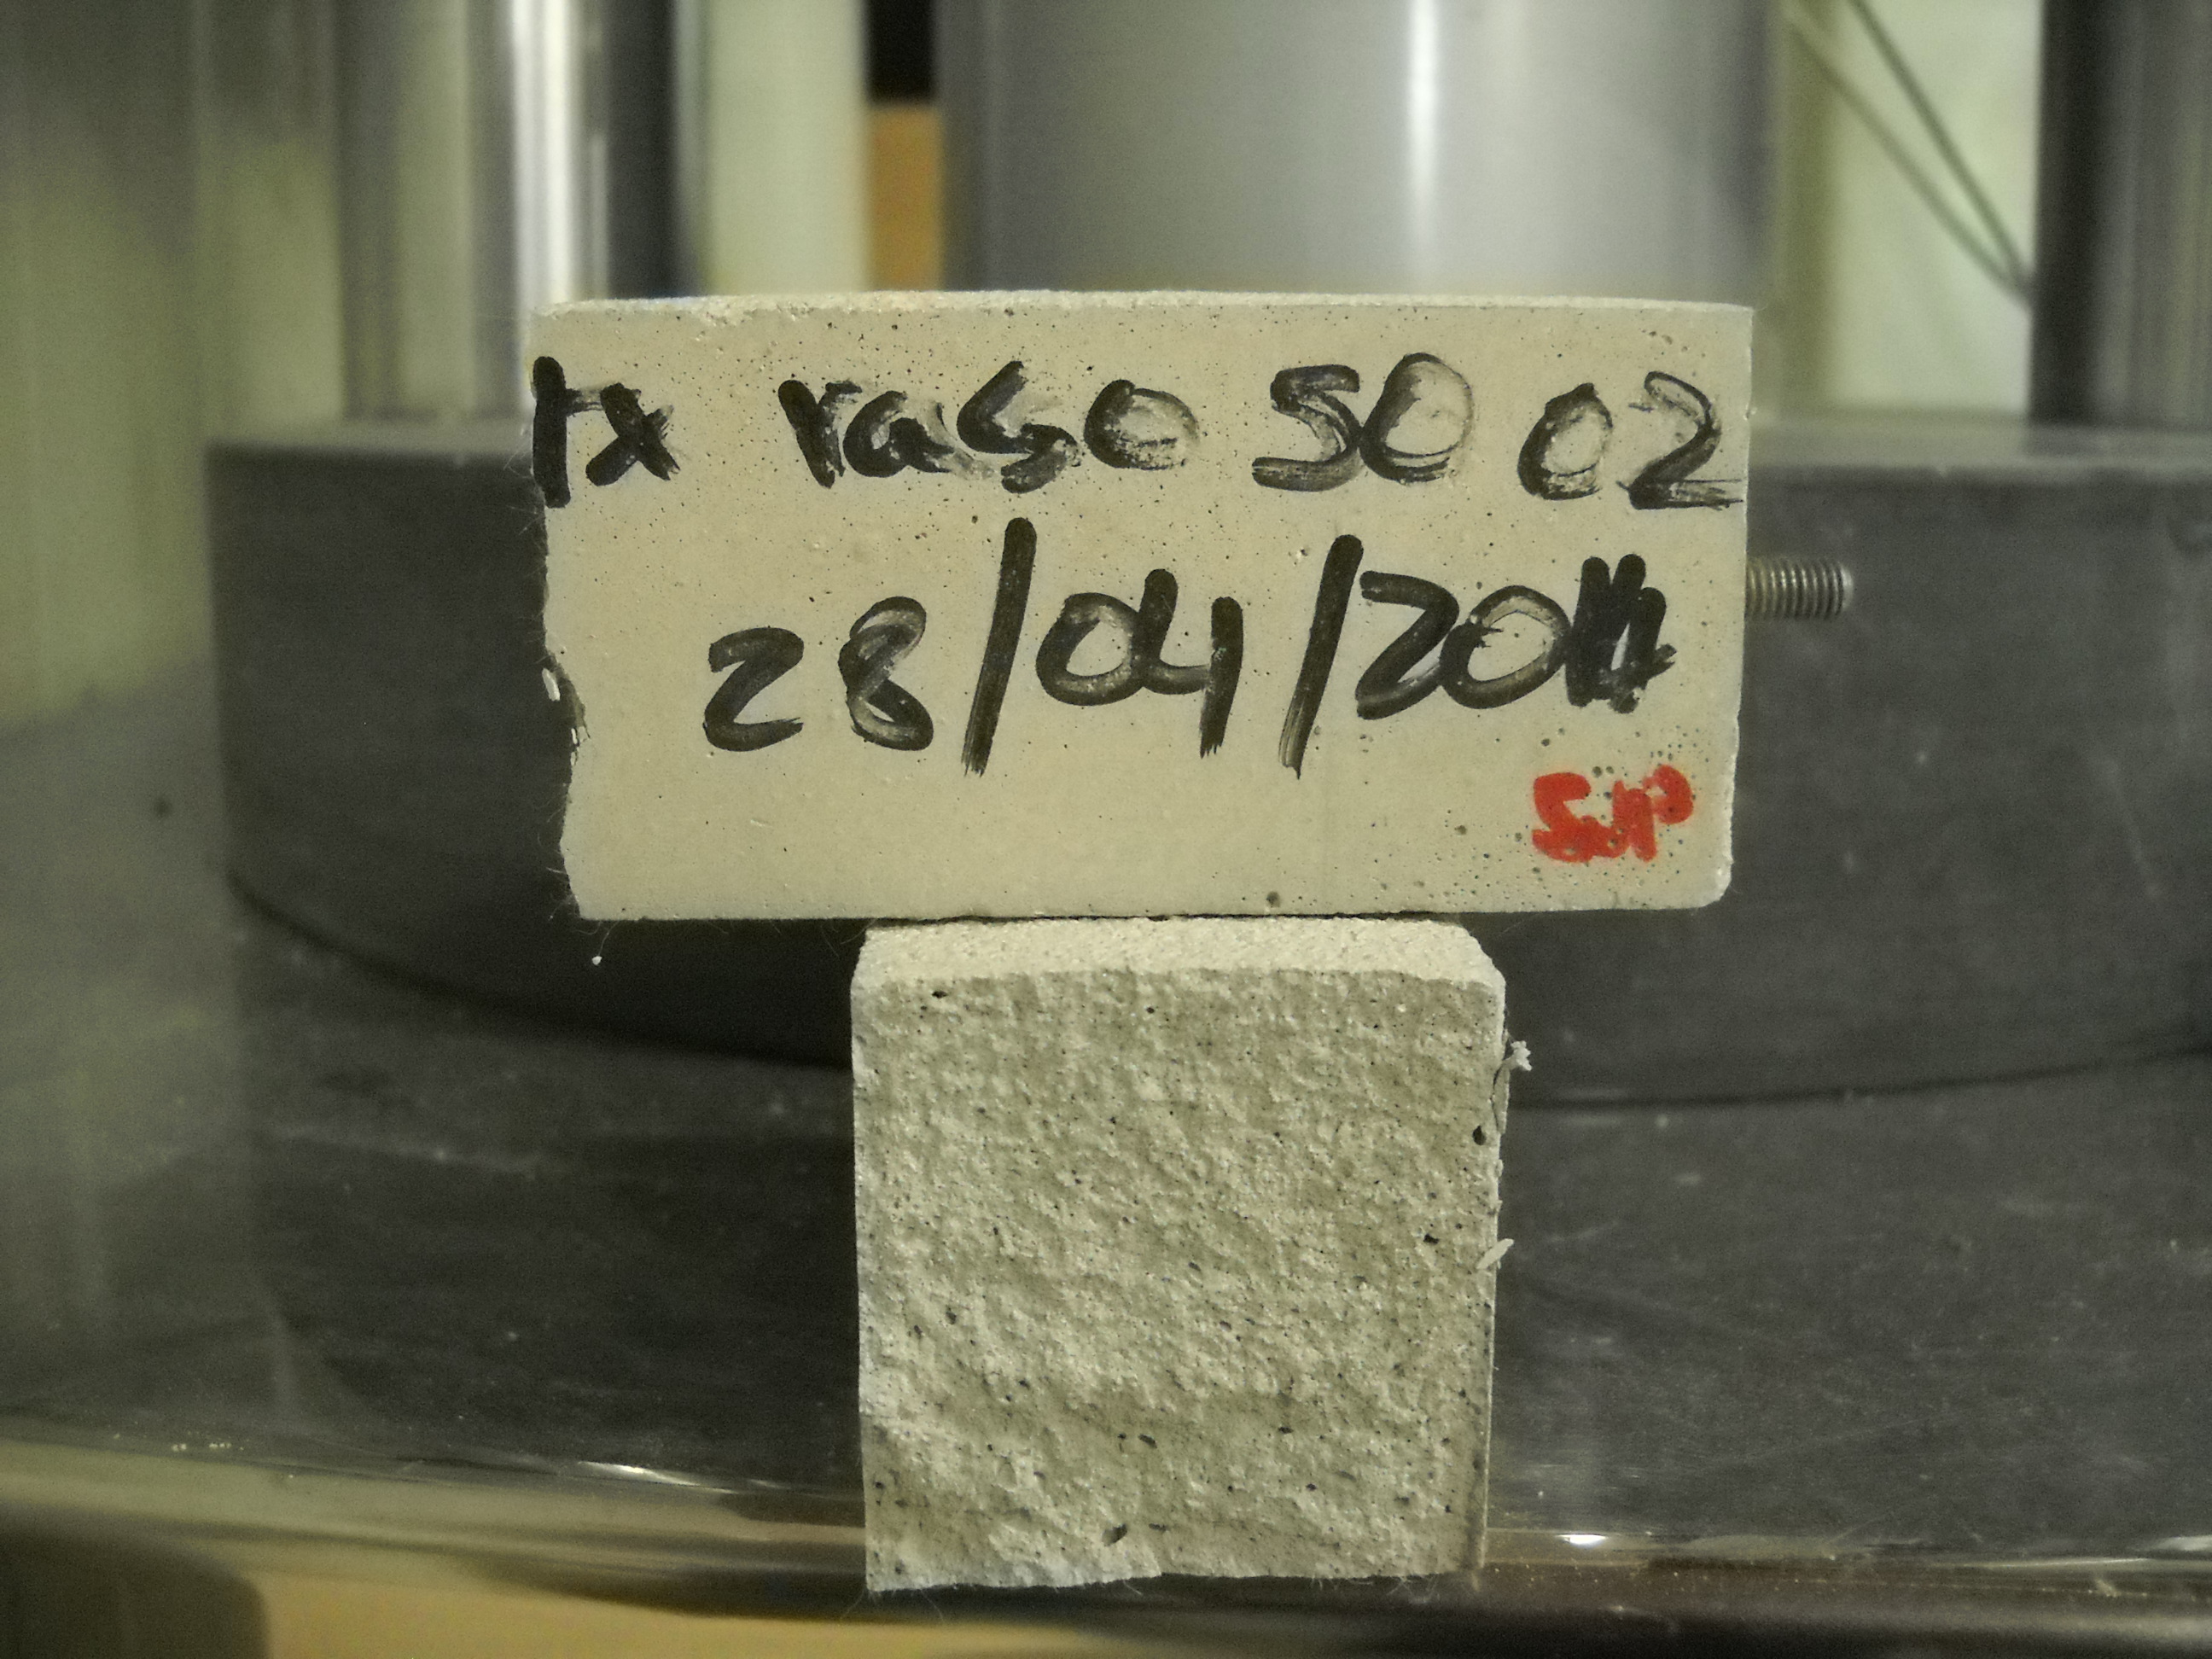 tx raso 50 02
28/04/2011
SUP